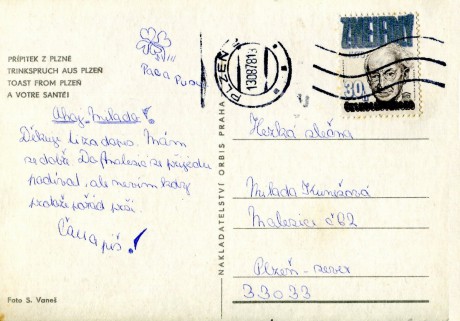 PŘÍPITEK Z PLZNĚ
TRINKSPRUCH AUS PLZEŇ
TOAST FROM PLZEŇ
A VOTRE SANTÉ!
Ahoj Milado!
Děkuji za dopis. Mám
se dobře. Do Malesic se přijedu
podívat, ale nevím kdy
protože pořád prší.
Čau a piš!
Foto S. Vaneš
NAKLADATELSTVÍ ORBIS PRAHA
PLZEŇ
13.08.78.13
30
Hezká slečna
Milada
Malesice č 62
Plzeň - sever
33033